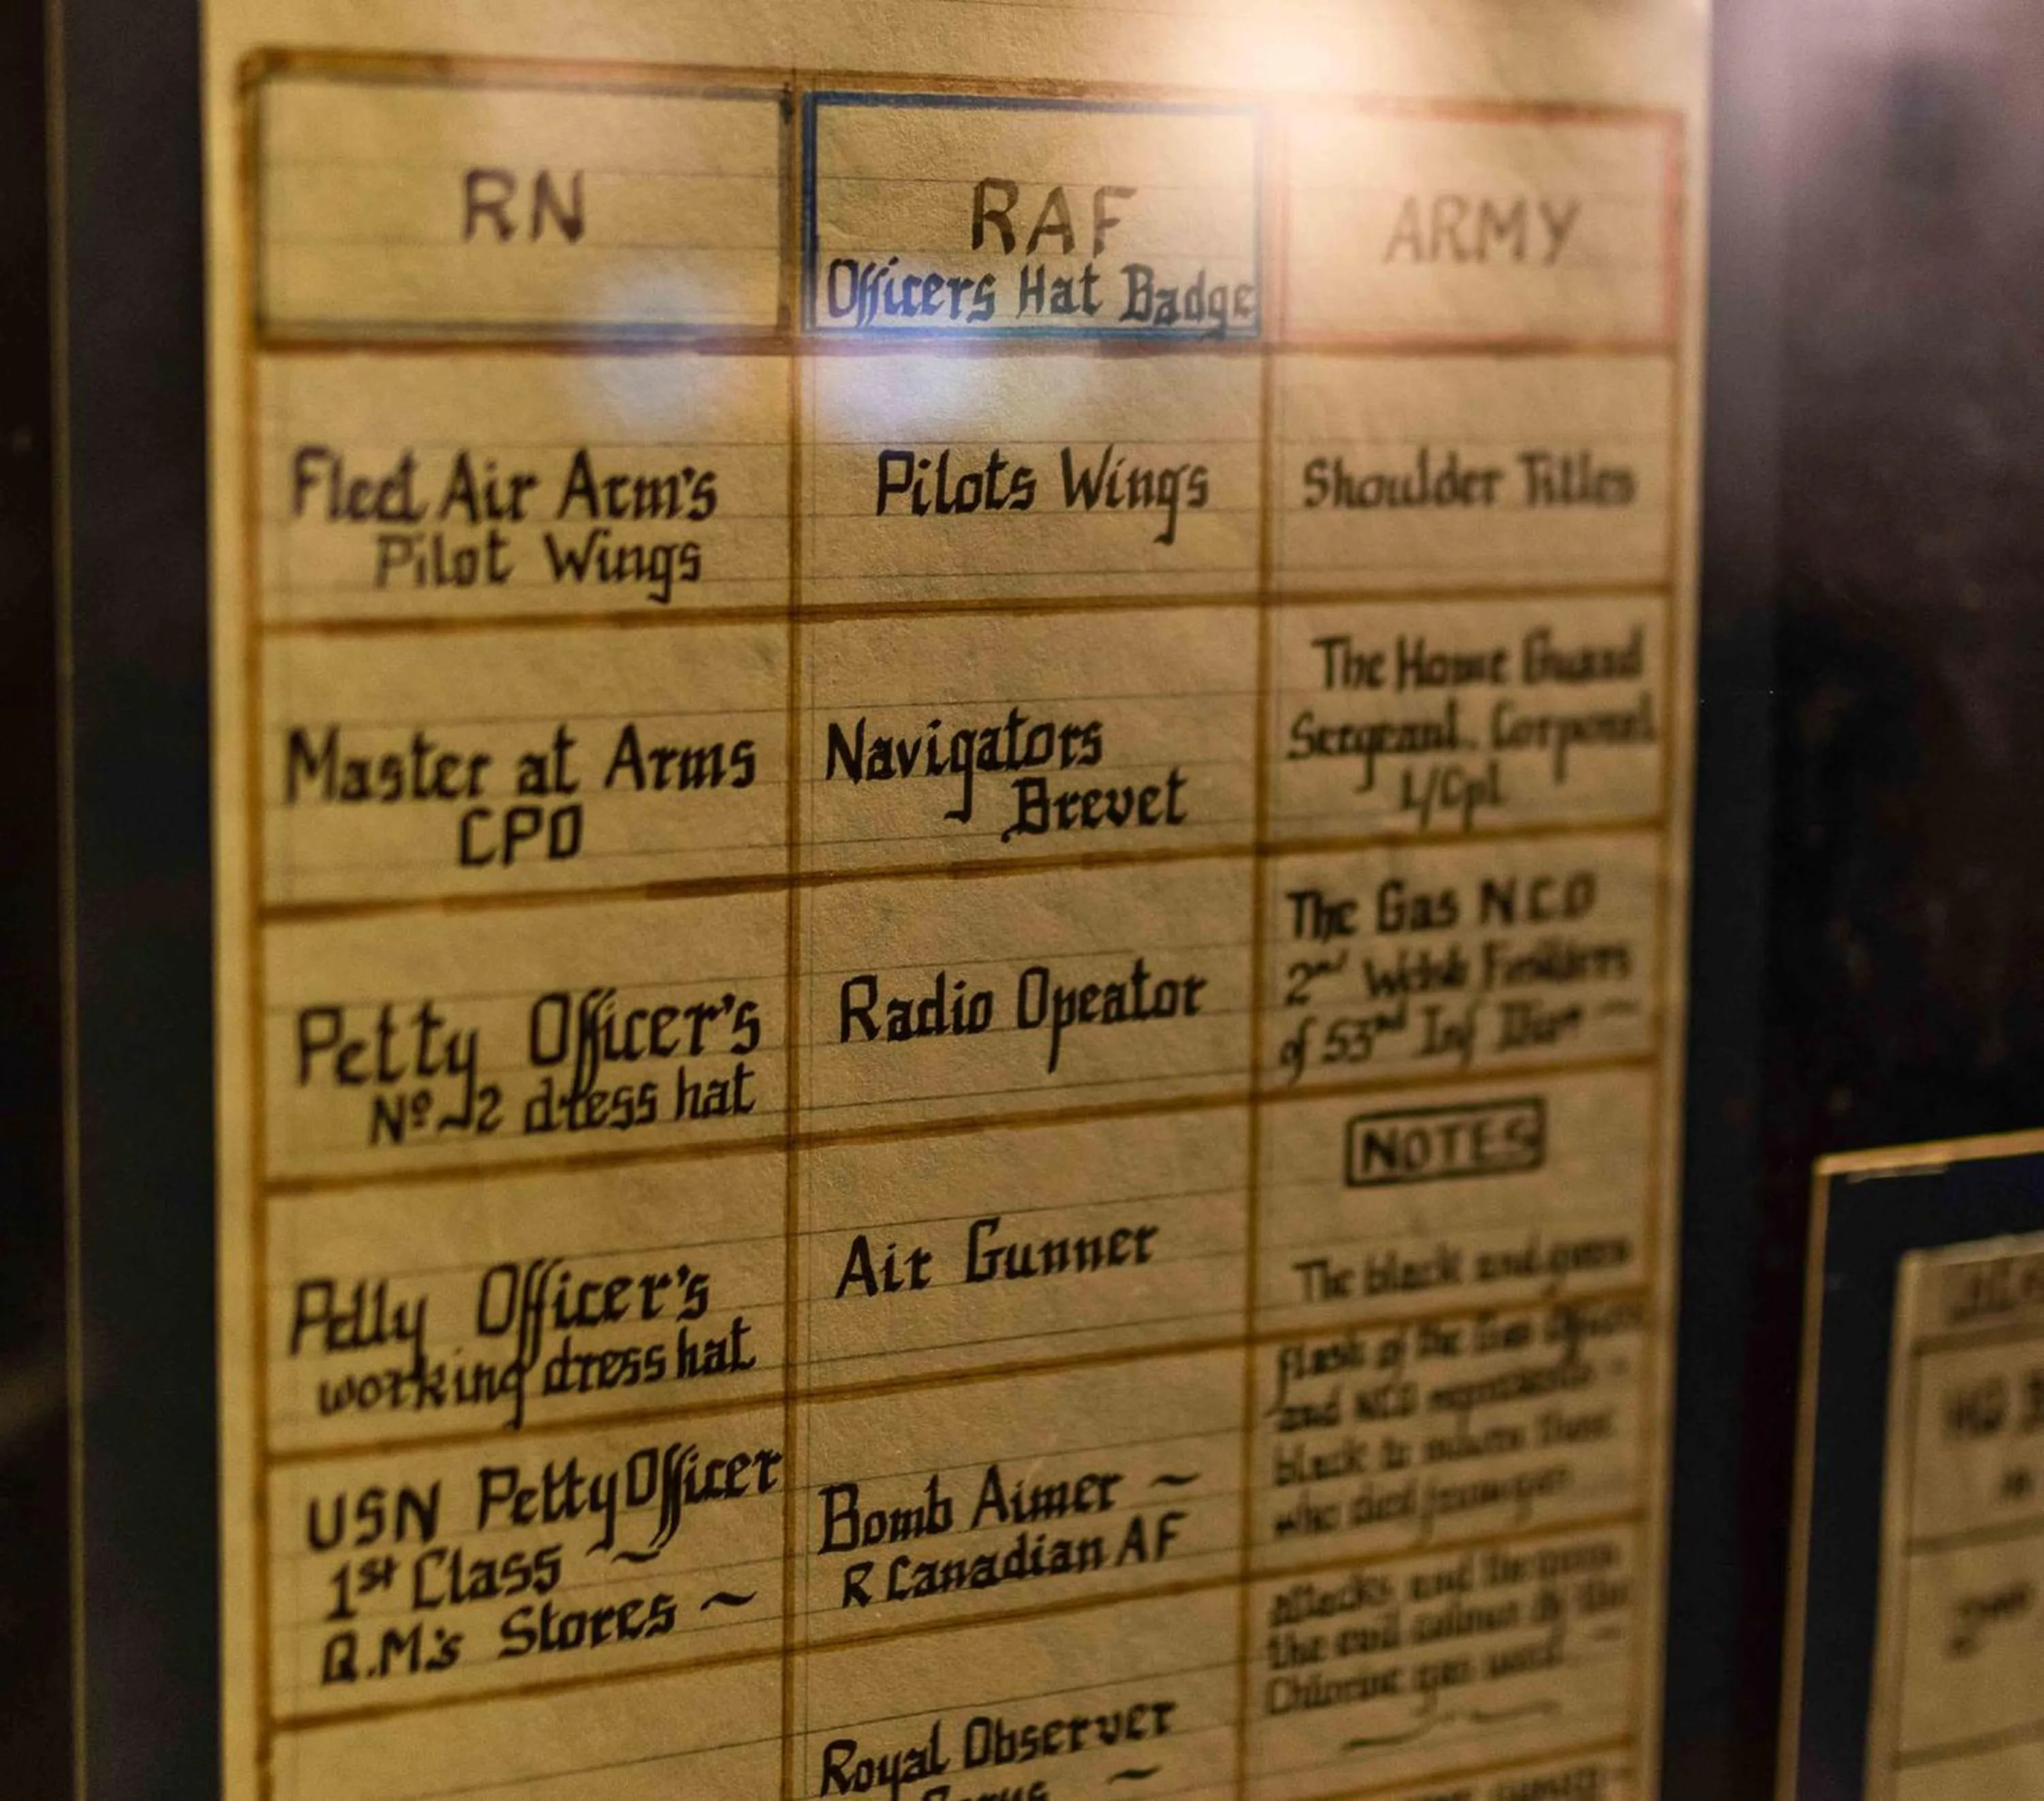 RN
RAF
Officers Hat Badge
ARMY
Fleet Air Arm's
Pilot Wings
Pilots Wings
Shoulder Titles
Master at Arms
CPO
Navigators
Brevet
The Home Guard
Sergeant. Corporal
L/Cpl
Petty Officer's
Nº 2 dress hat
Radio Opeator
The Gas N.C.O
2nd Welsh Fusiliers
of 53rd Inf Divn ~
Petty Officer's
working dress hat
Air Gunner
NOTES
The black and green
flash of the Gas Officers
and NCO represents -
black to mourn those
who died from gas
USN Petty Officer
1st Class ~
Q.M.'s Stores ~
Bomb Aimer ~
R Canadian AF
attacks and the green
the evil colour of the
Chlorine gas used. -
Royal Observer
Corps ~